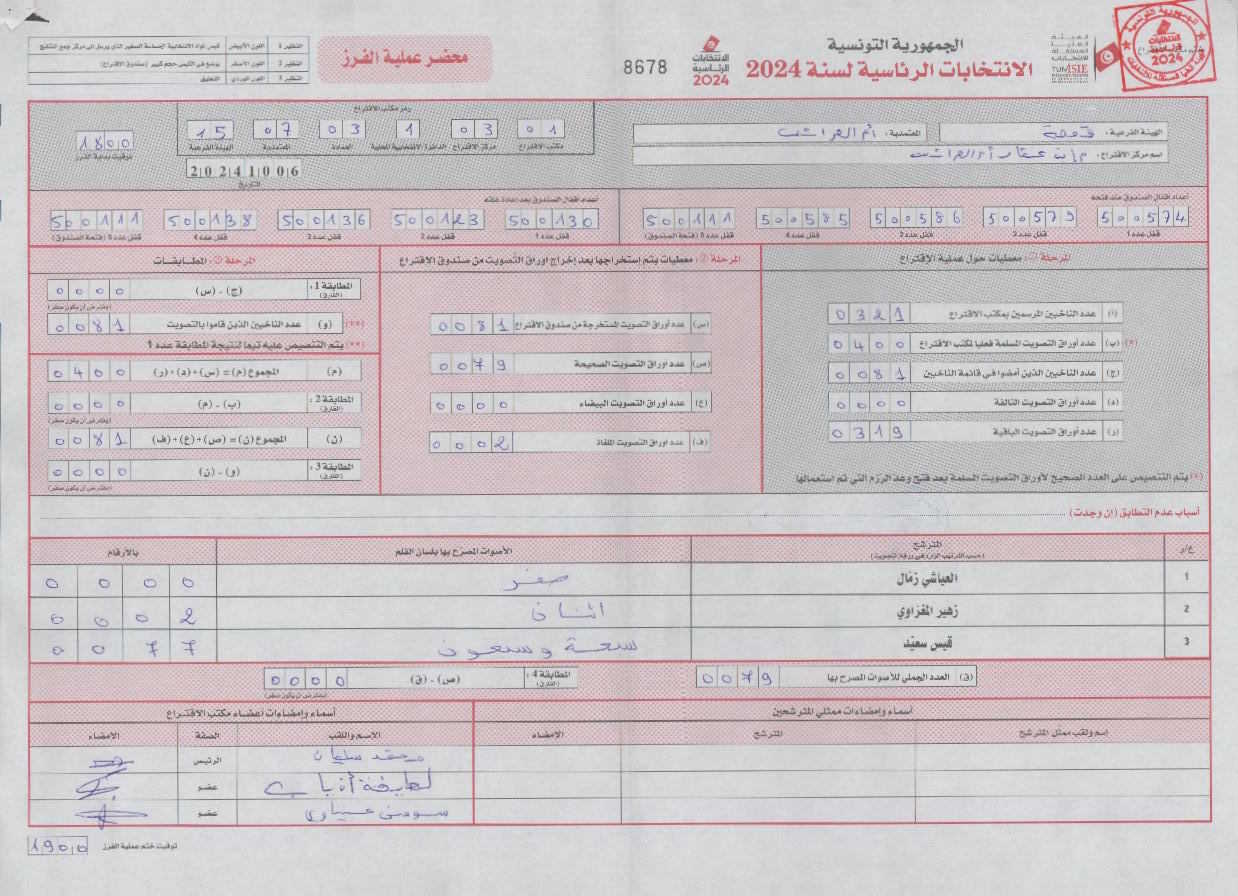 الجمهورية التونسية
الانتخابات الرئاسية لسنة 2024
الهيئة العليا المستقلة للانتخابات
TUNISIE
الانتخابات الرئاسية 2024
8678
محضر عملية الفرز
النظير 1 اللون الأبيض
النظير 2 اللون الأصفر يوضع في الكيس حجم كبير (صندوق الاقتراع)
النظير 3 اللون الوردي التعليق
الهيئة الفرعية: قفصة
المعتمدية: أم العرائس
اسم مركز الاقتراع:
رمز مكتب الاقتراع
01 03 1 03 07 15
مكتب الاقتراع مركز الاقتراع الدائرة الانتخابية المحلية العمادة المعتمدية الهيئة الفرعية
1800
توقيت بداية الفرز
20241006
التاريخ
أعداد أقفال الصندوق عند فتحه
500574 500579 500586 500585 500111
قفل عدد 1 قفل عدد 2 قفل عدد 3 قفل عدد 4 قفل عدد 5 (فتحة الصندوق)
أعداد أقفال الصندوق بعد إعادة غلقه
500130 500123 500136 500138 500111
قفل عدد 1 قفل عدد 2 قفل عدد 3 قفل عدد 4 قفل عدد 5 (فتحة الصندوق)
المرحلة ①: معطيات حول عملية الإقتراع
(أ) عدد الناخبين المرسمين بمكتب الاقتراع 0321
(*) (ب) عدد أوراق التصويت المسلمة فعليا لمكتب الاقتراع 0400
(ج) عدد الناخبين الذين أمضوا في قائمة الناخبين 0081
(د) عدد أوراق التصويت التالفة 0000
(ر) عدد أوراق التصويت الباقية 0319
(*) يتم التنصيص على العدد الصحيح لأوراق التصويت المسلمة بعد فتح وعد الرزم التي تم استعمالها
المرحلة ②: معطيات يتم إستخراجها بعد إخراج أوراق التصويت من صندوق الاقتراع
(س) عدد أوراق التصويت المستخرجة من صندوق الاقتراع 0081
(ص) عدد أوراق التصويت الصحيحة 0079
(ع) عدد أوراق التصويت البيضاء 0000
(ف) عدد أوراق التصويت الملغاة 0002
المرحلة ③: المطابقات
المطابقة 1: (الفارق) (ج) - (س) 0000
(يفترض أن يكون صفر)
(**) (و) عدد الناخبين الذين قاموا بالتصويت 0081
(**) يتم التنصيص عليه تبعا لنتيجة المطابقة عدد 1
(م) المجموع (م) = (س) + (د) + (ر) 0400
المطابقة 2: (الفارق) (ب) - (م) 0000
(يفترض أن يكون صفر)
(ن) المجموع (ن) = (ص) + (ع) + (ف) 0081
المطابقة 3: (الفارق) (و) - (ن) 0000
(يفترض أن يكون صفر)
أسباب عدم التطابق (إن وجدت)
ع/ر المترشح (حسب الترتيب الوارد في ورقة التصويت) الأصوات المصرح بها بلسان القلم بالأرقام
1 العياشي زمّال صفر 0000
2 زهير المغزاوي اثنان 0002
3 قيس سعيّد سبعة وسبعون 0077
(ق) العدد الجملي للأصوات المصرح بها 0079
المطابقة 4: (الفارق) (ص) - (ق) 0000
(يفترض أن يكون صفر)
أسماء وإمضاءات ممثلي المترشحين
إسم ولقب ممثل المترشح المترشح الإمضاء
أسماء وإمضاءات أعضاء مكتب الاقتراع
الاسم واللقب الصفة الامضاء
محمد سليمان الرئيس
لطيفة عضو
عضو
توقيت ختم عملية الفرز 1900